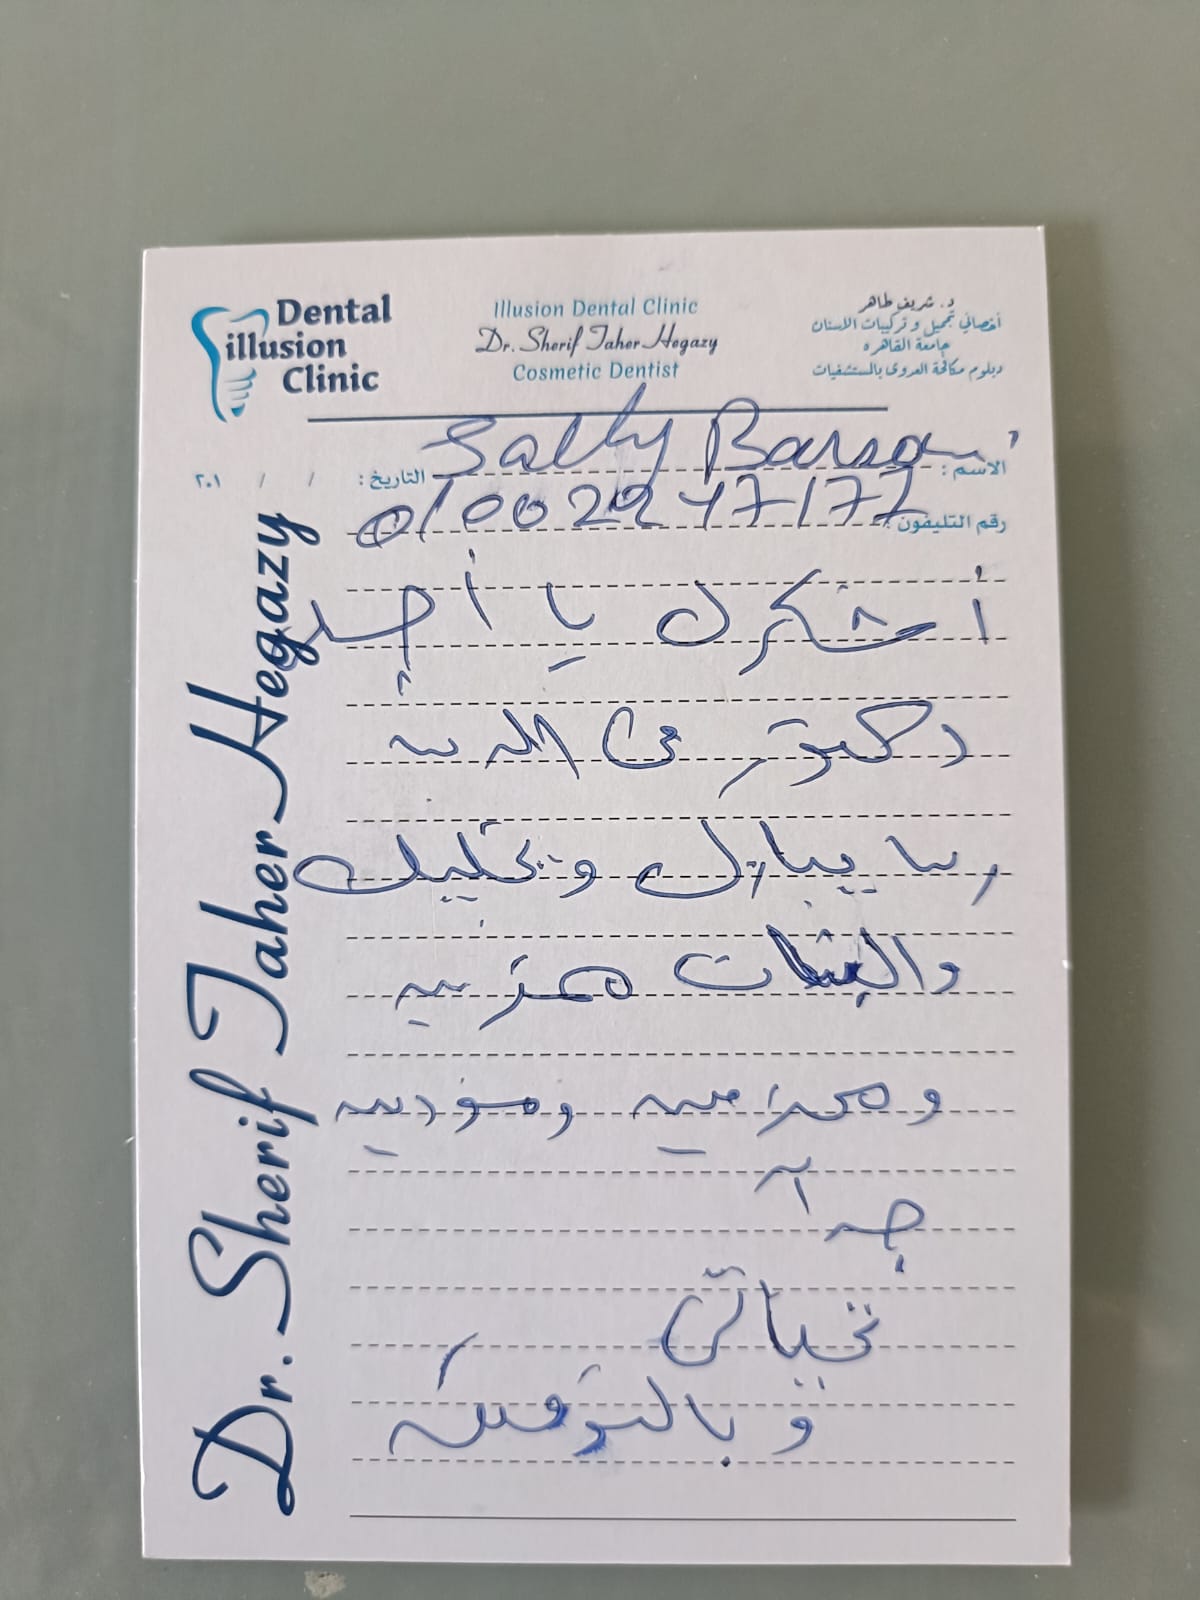 Dental
illusion
Clinic
Illusion Dental Clinic
Dr. Sherif Taher Hegazy
Cosmetic Dentist
د. شريف طاهر
أخصائي تجميل و تركيبات الاسنان
جامعة القاهره
دبلوم مكافحة العدوى بالمستشفيات
الاسم:
التاريخ: / / ٢٠١
رقم التليفون
أشكرك يا أجمل
دكتور في الدنيا
ربنا يبارك ويخليك
والبنات محترمين
ومحترمين ومؤدبين
جداً
تحياتي
وبالتوفيق
Dr. Sherif Taher Hegazy